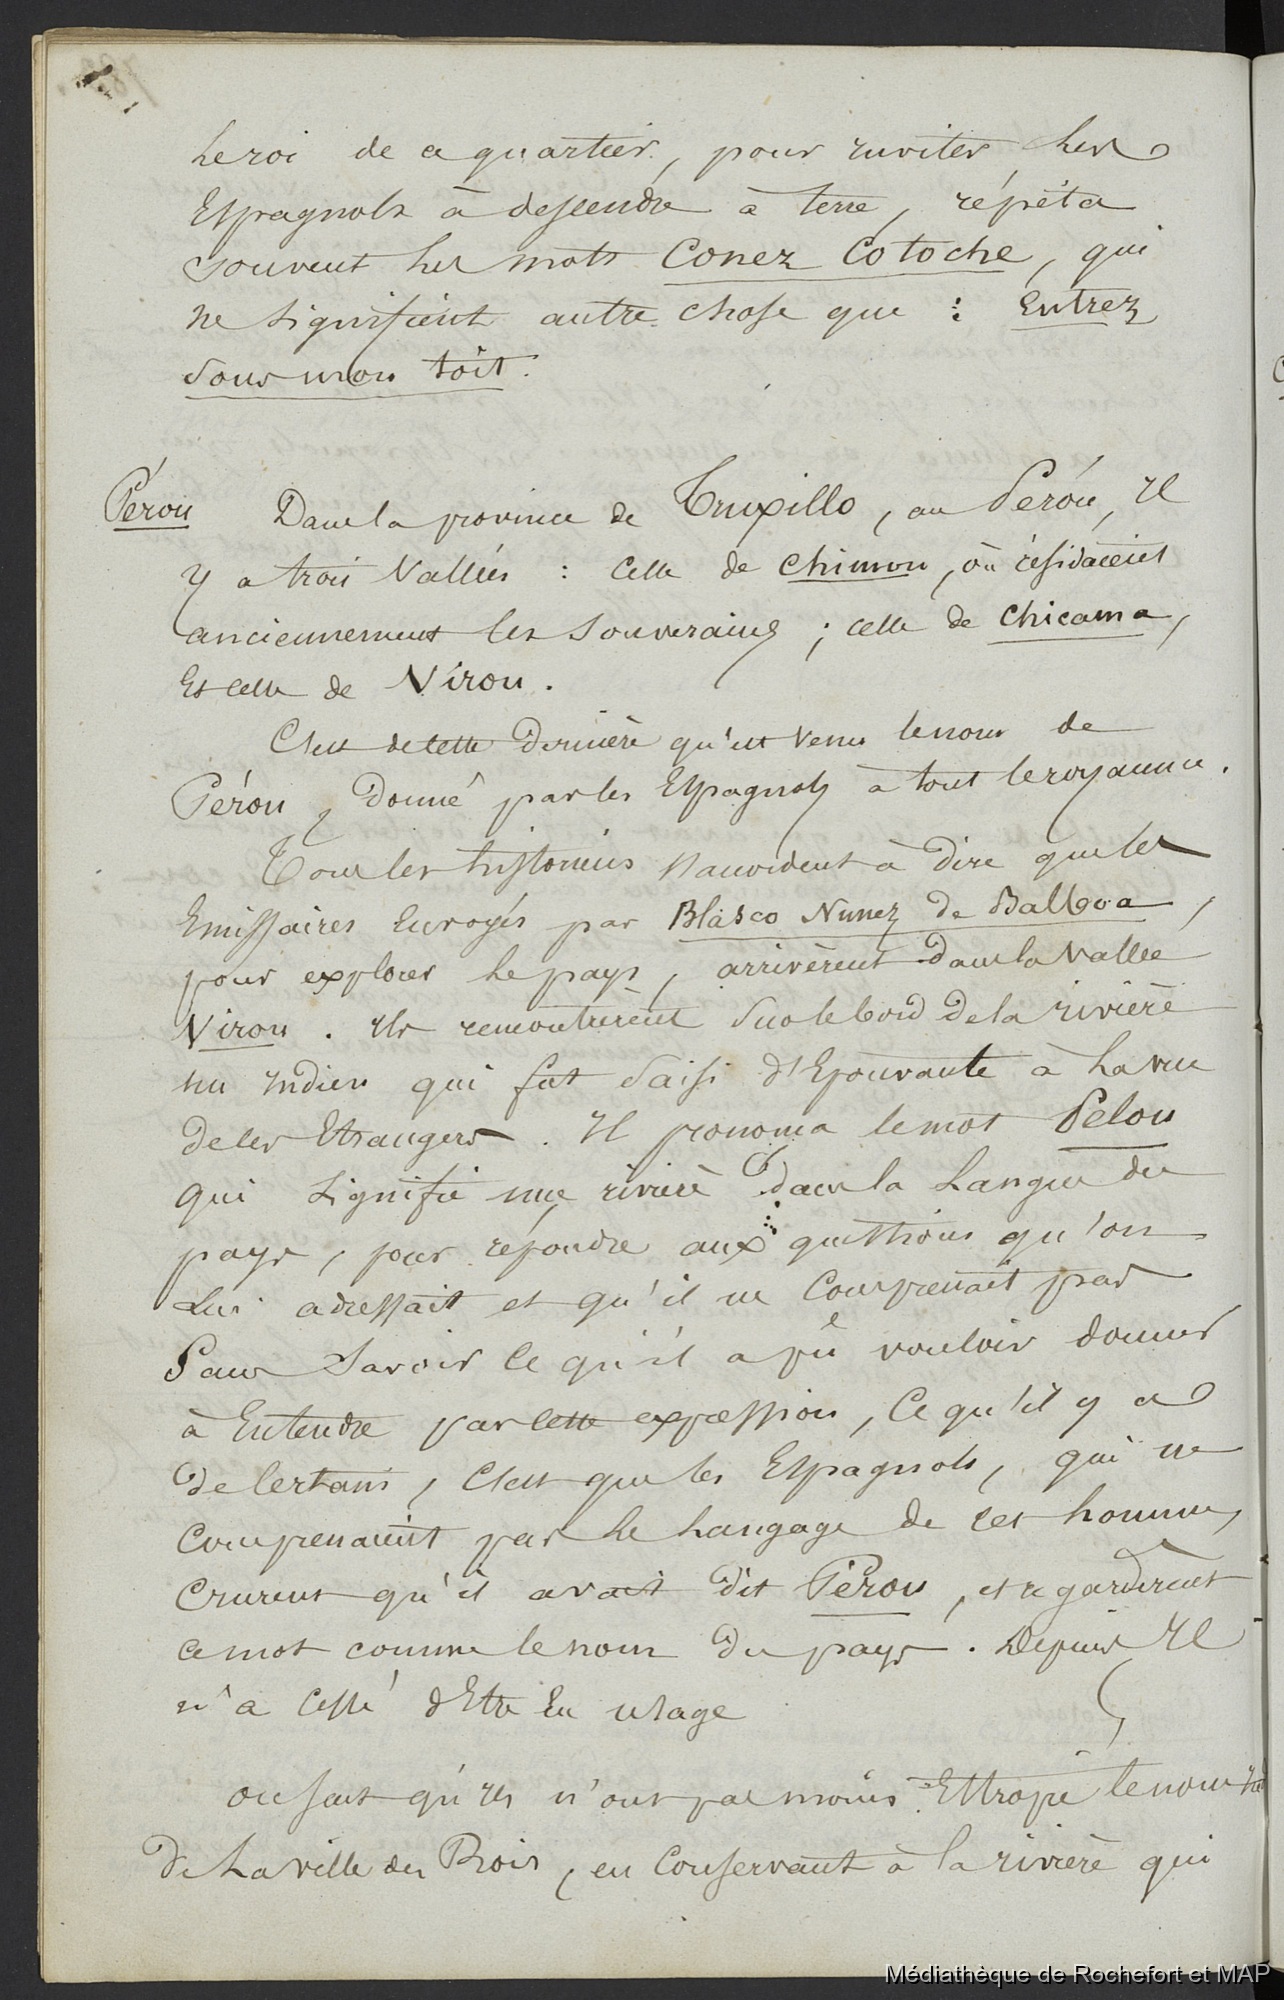 Le roi de ce quartier, pour inviter Les
Espagnols à descendre à terre, répéta
souvent Les mots Conez Cotoche, qui
ne signifient autre chose que : Entrez
sous mon toit.
Pérou
Dans la province de Truxillo, au Pérou, Il
y a trois Vallées : Celle de Chimou, où résidaient
anciennement les Souverains ; celle de Chicama,
Et celle de Virou.
C'est de cette dernière qu'est venu le nom de
Pérou, donné par les Espagnols à tout le royaume.
Tous les historiens s'accordent à dire que les
Emissaires Envoyés par Blasco Nunez de Balboa,
pour explorer Le pays, arrivèrent dans la Vallée
Virou. Ils rencontrèrent sur le bord de la rivière
un Indien qui fut saisi d'Epouvante à La vue
de ces Etrangers. Il prononça le mot Pelou
qui signifie une rivière dans la Langue du
pays, pour répondre aux questions qu'on
Lui adressait et qu'il ne Comprenait pas
Sans Savoir Ce qu'il a pû vouloir donner
à Entendre par cette expression, Ce qu'il y a
de Certain, C'est que les Espagnols, qui ne
Comprenaient pas Le Langage de cet homme,
Crurent qu'il avait dit Pérou, et regardèrent
ce mot comme le nom du pays. Depuis Il
n'a Cessé d'Etre En usage
On sait qu'Ils n'ont pas moins Estropié le nom
de La ville des Rois, en Conservant à la rivière qui
Médiathèque de Rochefort et MAP